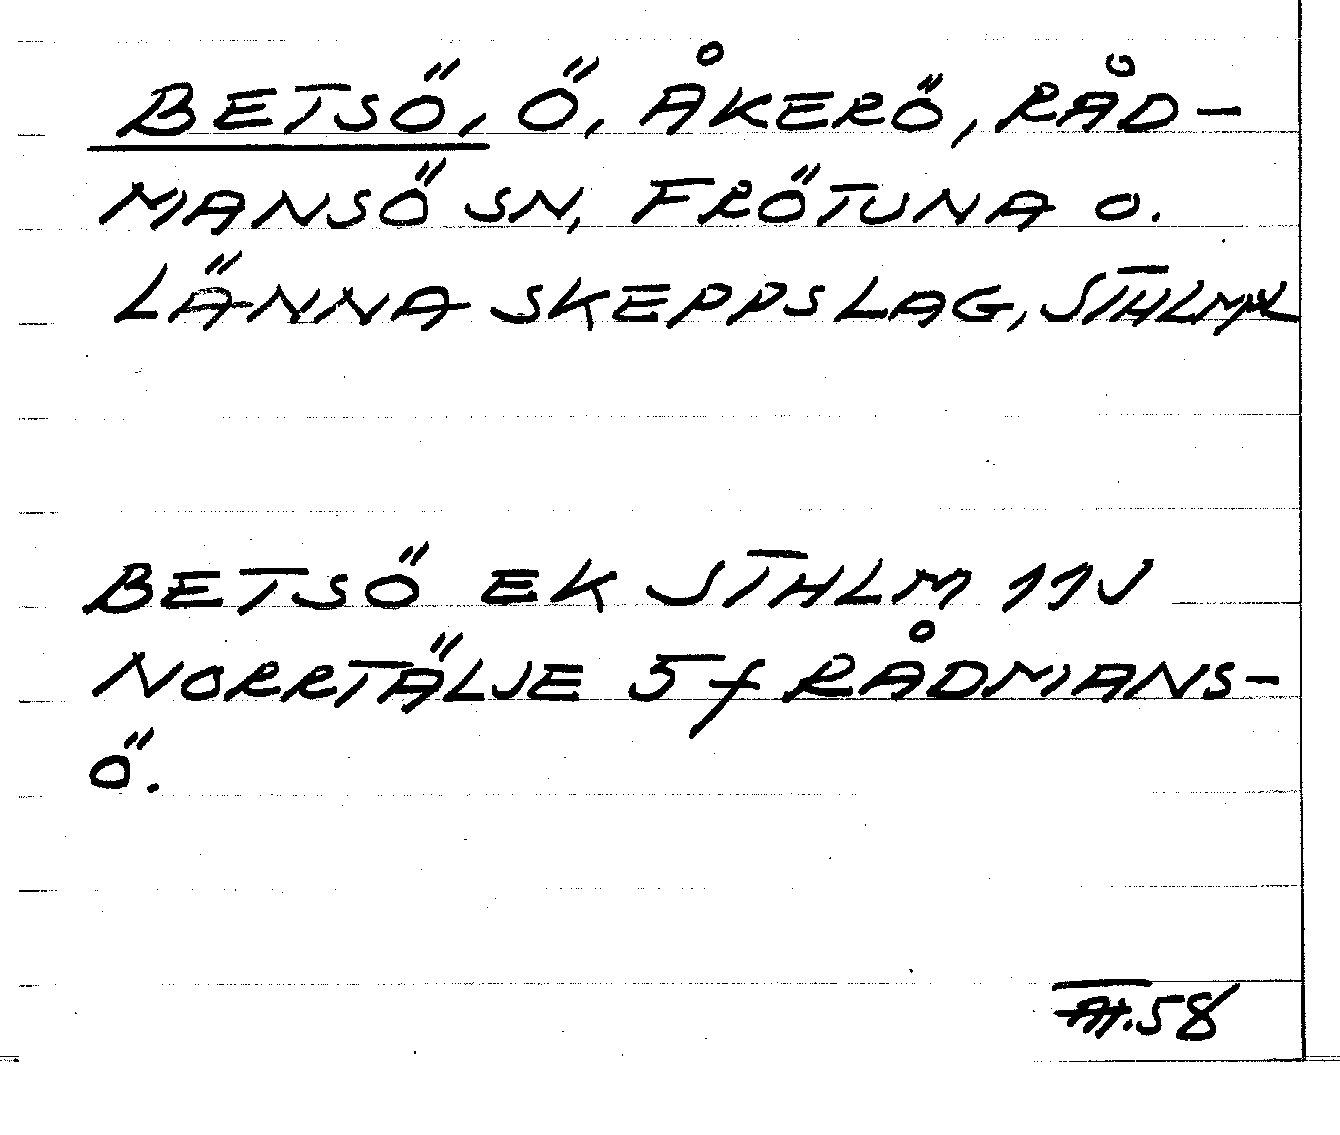 BETSÖ, Ö, ÅKERÖ, RÅD-
MANSÖ SN, FRÖTUNA O.
LÄNNA SKEPPSLAG, STHLM
BETSÖ EK STHLM 11V
NORRTÄLJE 5f RÅDMANS-
Ö.
58